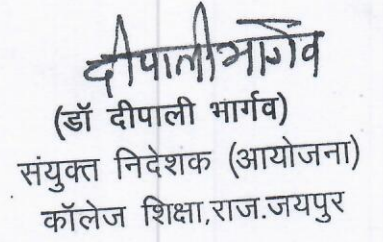 दीपाली भार्गव
(डॉ दीपाली भार्गव)
संयुक्त निदेशक (आयोजना)
कॉलेज शिक्षा,राज.जयपुर